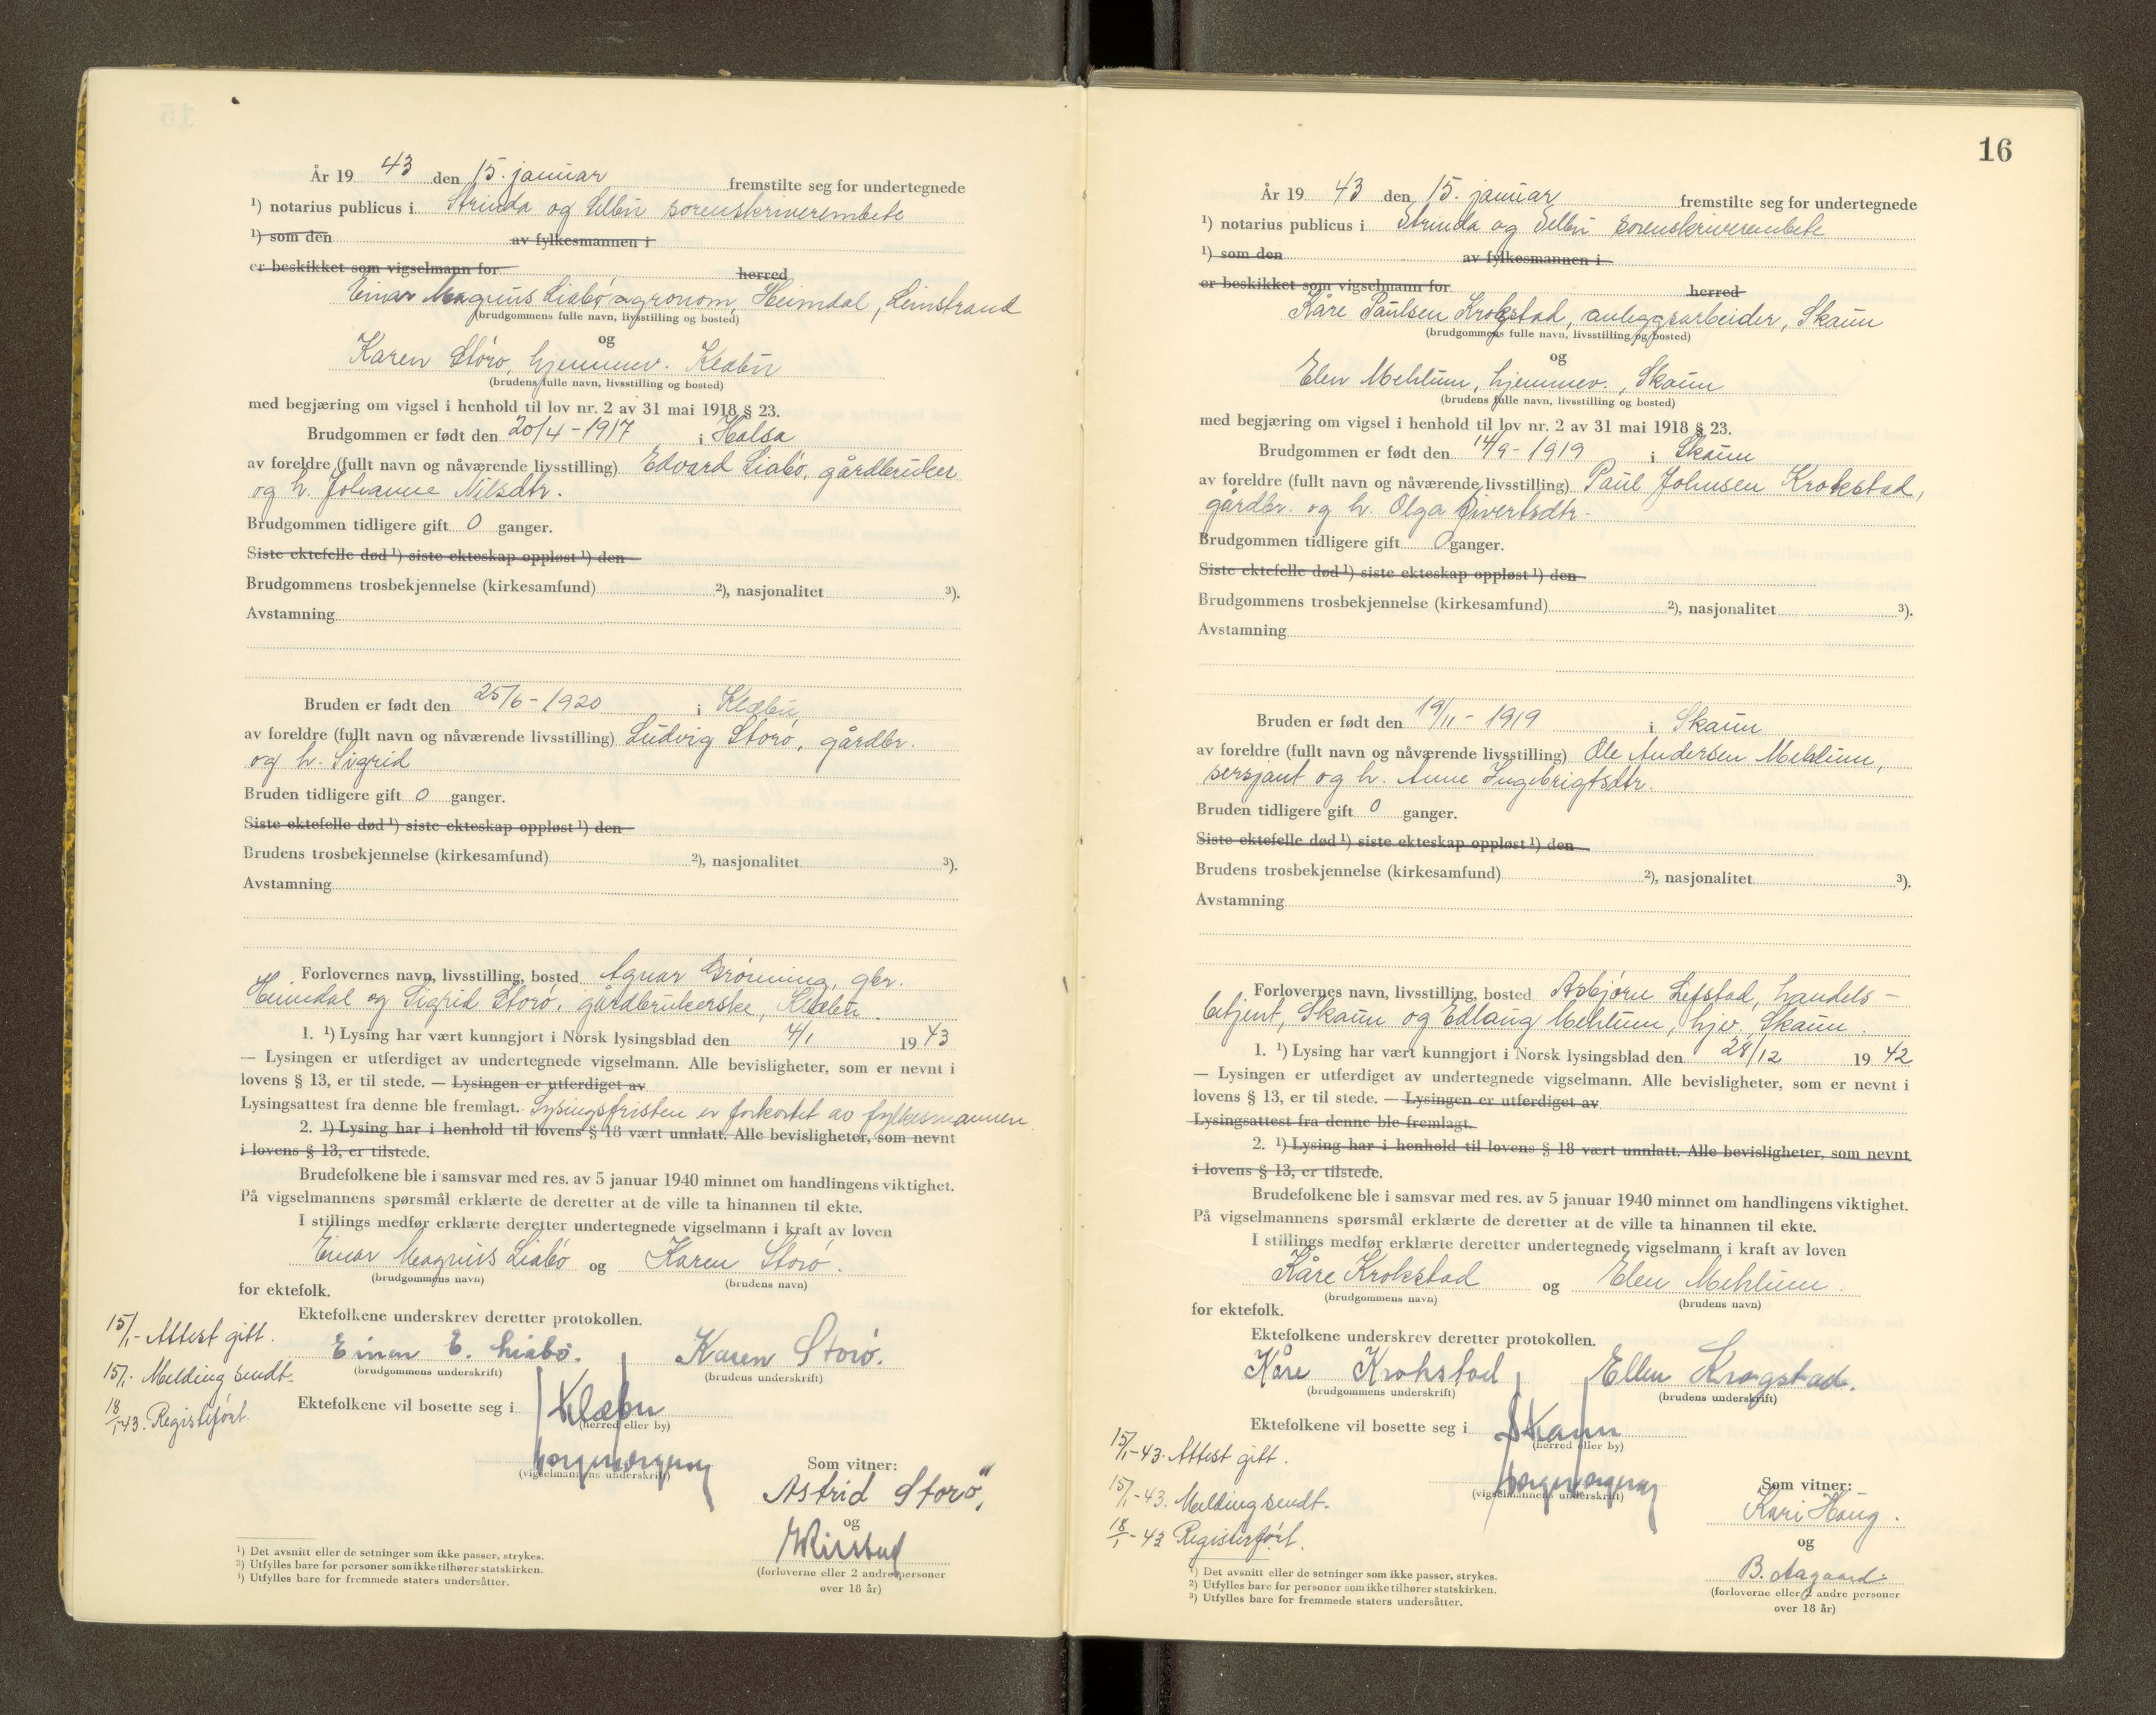 År 19 43 den 15. januar fremstilte seg for undertegnede
¹) notarius publicus i Strinda og Selbu sorenskriverembete
¹) som den av fylkesmannen i
er beskikket som vigselmann for herred
Einar Magnus Liabø agronom, Heimdal, Leinstrand
(brudgommens fulle navn, livsstilling og bosted)
og
Karen Storø, hjemmev. Klæbu
(brudens fulle navn, livsstilling og bosted)
med begjæring om vigsel i henhold til lov nr. 2 av 31 mai 1918 § 23.
Brudgommen er født den 20/4 - 1917 i Halsa
av foreldre (fullt navn og nåværende livsstilling) Edvard Liabø, gårdbruker
og h. Johanne Nilsdtr.
Brudgommen tidligere gift 0 ganger.
Siste ektefelle død ¹) siste ekteskap oppløst ¹) den
Brudgommens trosbekjennelse (kirkesamfund) ²), nasjonalitet ³).
Avstamning
Bruden er født den 25/6 - 1920 i Klæbu
av foreldre (fullt navn og nåværende livsstilling) Ludvig Storø, gårdbr.
og h. Sigrid
Bruden tidligere gift 0 ganger.
Siste ektefelle død ¹) siste ekteskap oppløst ¹) den
Brudens trosbekjennelse (kirkesamfund) ²), nasjonalitet ³).
Avstamning
Forlovernes navn, livsstilling, bosted Agnar Grønning, gbr.
Heimdal og Sigrid Storø, gårdbrukerske, Klæbu.
1. ¹) Lysing har vært kunngjort i Norsk lysingsblad den 4/1 19 43
— Lysingen er utferdiget av undertegnede vigselmann. Alle bevisligheter, som er nevnt i
lovens § 13, er til stede. — Lysingen er utferdiget av
Lysingsattest fra denne ble fremlagt. Lysingsfristen er forkortet av fylkesmannen
2. ¹) Lysing har i henhold til lovens § 18 vært unnlatt. Alle bevisligheter, som nevnt
i lovens § 13, er tilstede.
Brudefolkene ble i samsvar med res. av 5 januar 1940 minnet om handlingens viktighet.
På vigselmannens spørsmål erklærte de deretter at de ville ta hinannen til ekte.
I stillings medfør erklærte deretter undertegnede vigselmann i kraft av loven
Einar Magnus Liabø og Karen Storø.
(brudgommens navn) (brudens navn)
for ektefolk.
Ektefolkene underskrev deretter protokollen.
15/1- Attest gitt.
Einar E. Liabø. Karen Storø.
(brudgommens underskrift) (brudens underskrift)
15/1- Melding sendt.
Ektefolkene vil bosette seg i Klæbu
18/1-43. Registerført.
(herred eller by)
(vigselmannens underskrift)
Som vitner:
Astrid Storø,
og
(forloverne eller 2 andre personer
over 18 år)
¹) Det avsnitt eller de setninger som ikke passer, strykes.
²) Utfylles bare for personer som ikke tilhører statskirken.
³) Utfylles bare for fremmede staters undersåtter.
16
År 19 43 den 15. januar fremstilte seg for undertegnede
¹) notarius publicus i Strinda og Selbu sorenskriverembete
¹) som den av fylkesmannen i
er beskikket som vigselmann for herred
Kåre Paulsen Krokstad, anleggsarbeider, Skaun
(brudgommens fulle navn, livsstilling og bosted)
og
Elen Mehlum, hjemmev., Skaun
(brudens fulle navn, livsstilling og bosted)
med begjæring om vigsel i henhold til lov nr. 2 av 31 mai 1918 § 23.
Brudgommen er født den 14/9 - 1919 i Skaun
av foreldre (fullt navn og nåværende livsstilling) Paul Johnsen Krokstad,
gårdbr. og h. Olga Sivertsdtr.
Brudgommen tidligere gift 0 ganger.
Siste ektefelle død ¹) siste ekteskap oppløst ¹) den
Brudgommens trosbekjennelse (kirkesamfund) ²), nasjonalitet ³).
Avstamning
Bruden er født den 19/11 - 1919 i Skaun
av foreldre (fullt navn og nåværende livsstilling) Ole Andersen Mehlum,
sersjant og h. Anne Ingebrigtsdtr.
Bruden tidligere gift 0 ganger.
Siste ektefelle død ¹) siste ekteskap oppløst ¹) den
Brudens trosbekjennelse (kirkesamfund) ²), nasjonalitet ³).
Avstamning
Forlovernes navn, livsstilling, bosted Asbjørn Lefstad, handels-
betjent, Skaun og Edlaug Mehlum, hjv. Skaun.
1. ¹) Lysing har vært kunngjort i Norsk lysingsblad den 28/12 19 42
— Lysingen er utferdiget av undertegnede vigselmann. Alle bevisligheter, som er nevnt i
lovens § 13, er til stede. — Lysingen er utferdiget av
Lysingsattest fra denne ble fremlagt.
2. ¹) Lysing har i henhold til lovens § 18 vært unnlatt. Alle bevisligheter, som nevnt
i lovens § 13, er tilstede.
Brudefolkene ble i samsvar med res. av 5 januar 1940 minnet om handlingens viktighet.
På vigselmannens spørsmål erklærte de deretter at de ville ta hinannen til ekte.
I stillings medfør erklærte deretter undertegnede vigselmann i kraft av loven
Kåre Krokstad og Elen Mehlum.
(brudgommens navn) (brudens navn)
for ektefolk.
Ektefolkene underskrev deretter protokollen.
Kåre Krokstad Ellen Krogstad.
(brudgommens underskrift) (brudens underskrift)
Ektefolkene vil bosette seg i Skaun
(herred eller by)
15/1-43. Attest gitt.
(vigselmannens underskrift)
15/1-43. Melding sendt.
Som vitner:
Kari Haug.
18/1-43 Registerført.
og
B. Aagaard.
(forloverne eller 2 andre personer
over 18 år)
¹) Det avsnitt eller de setninger som ikke passer, strykes.
²) Utfylles bare for personer som ikke tilhører statskirken.
³) Utfylles bare for fremmede staters undersåtter.